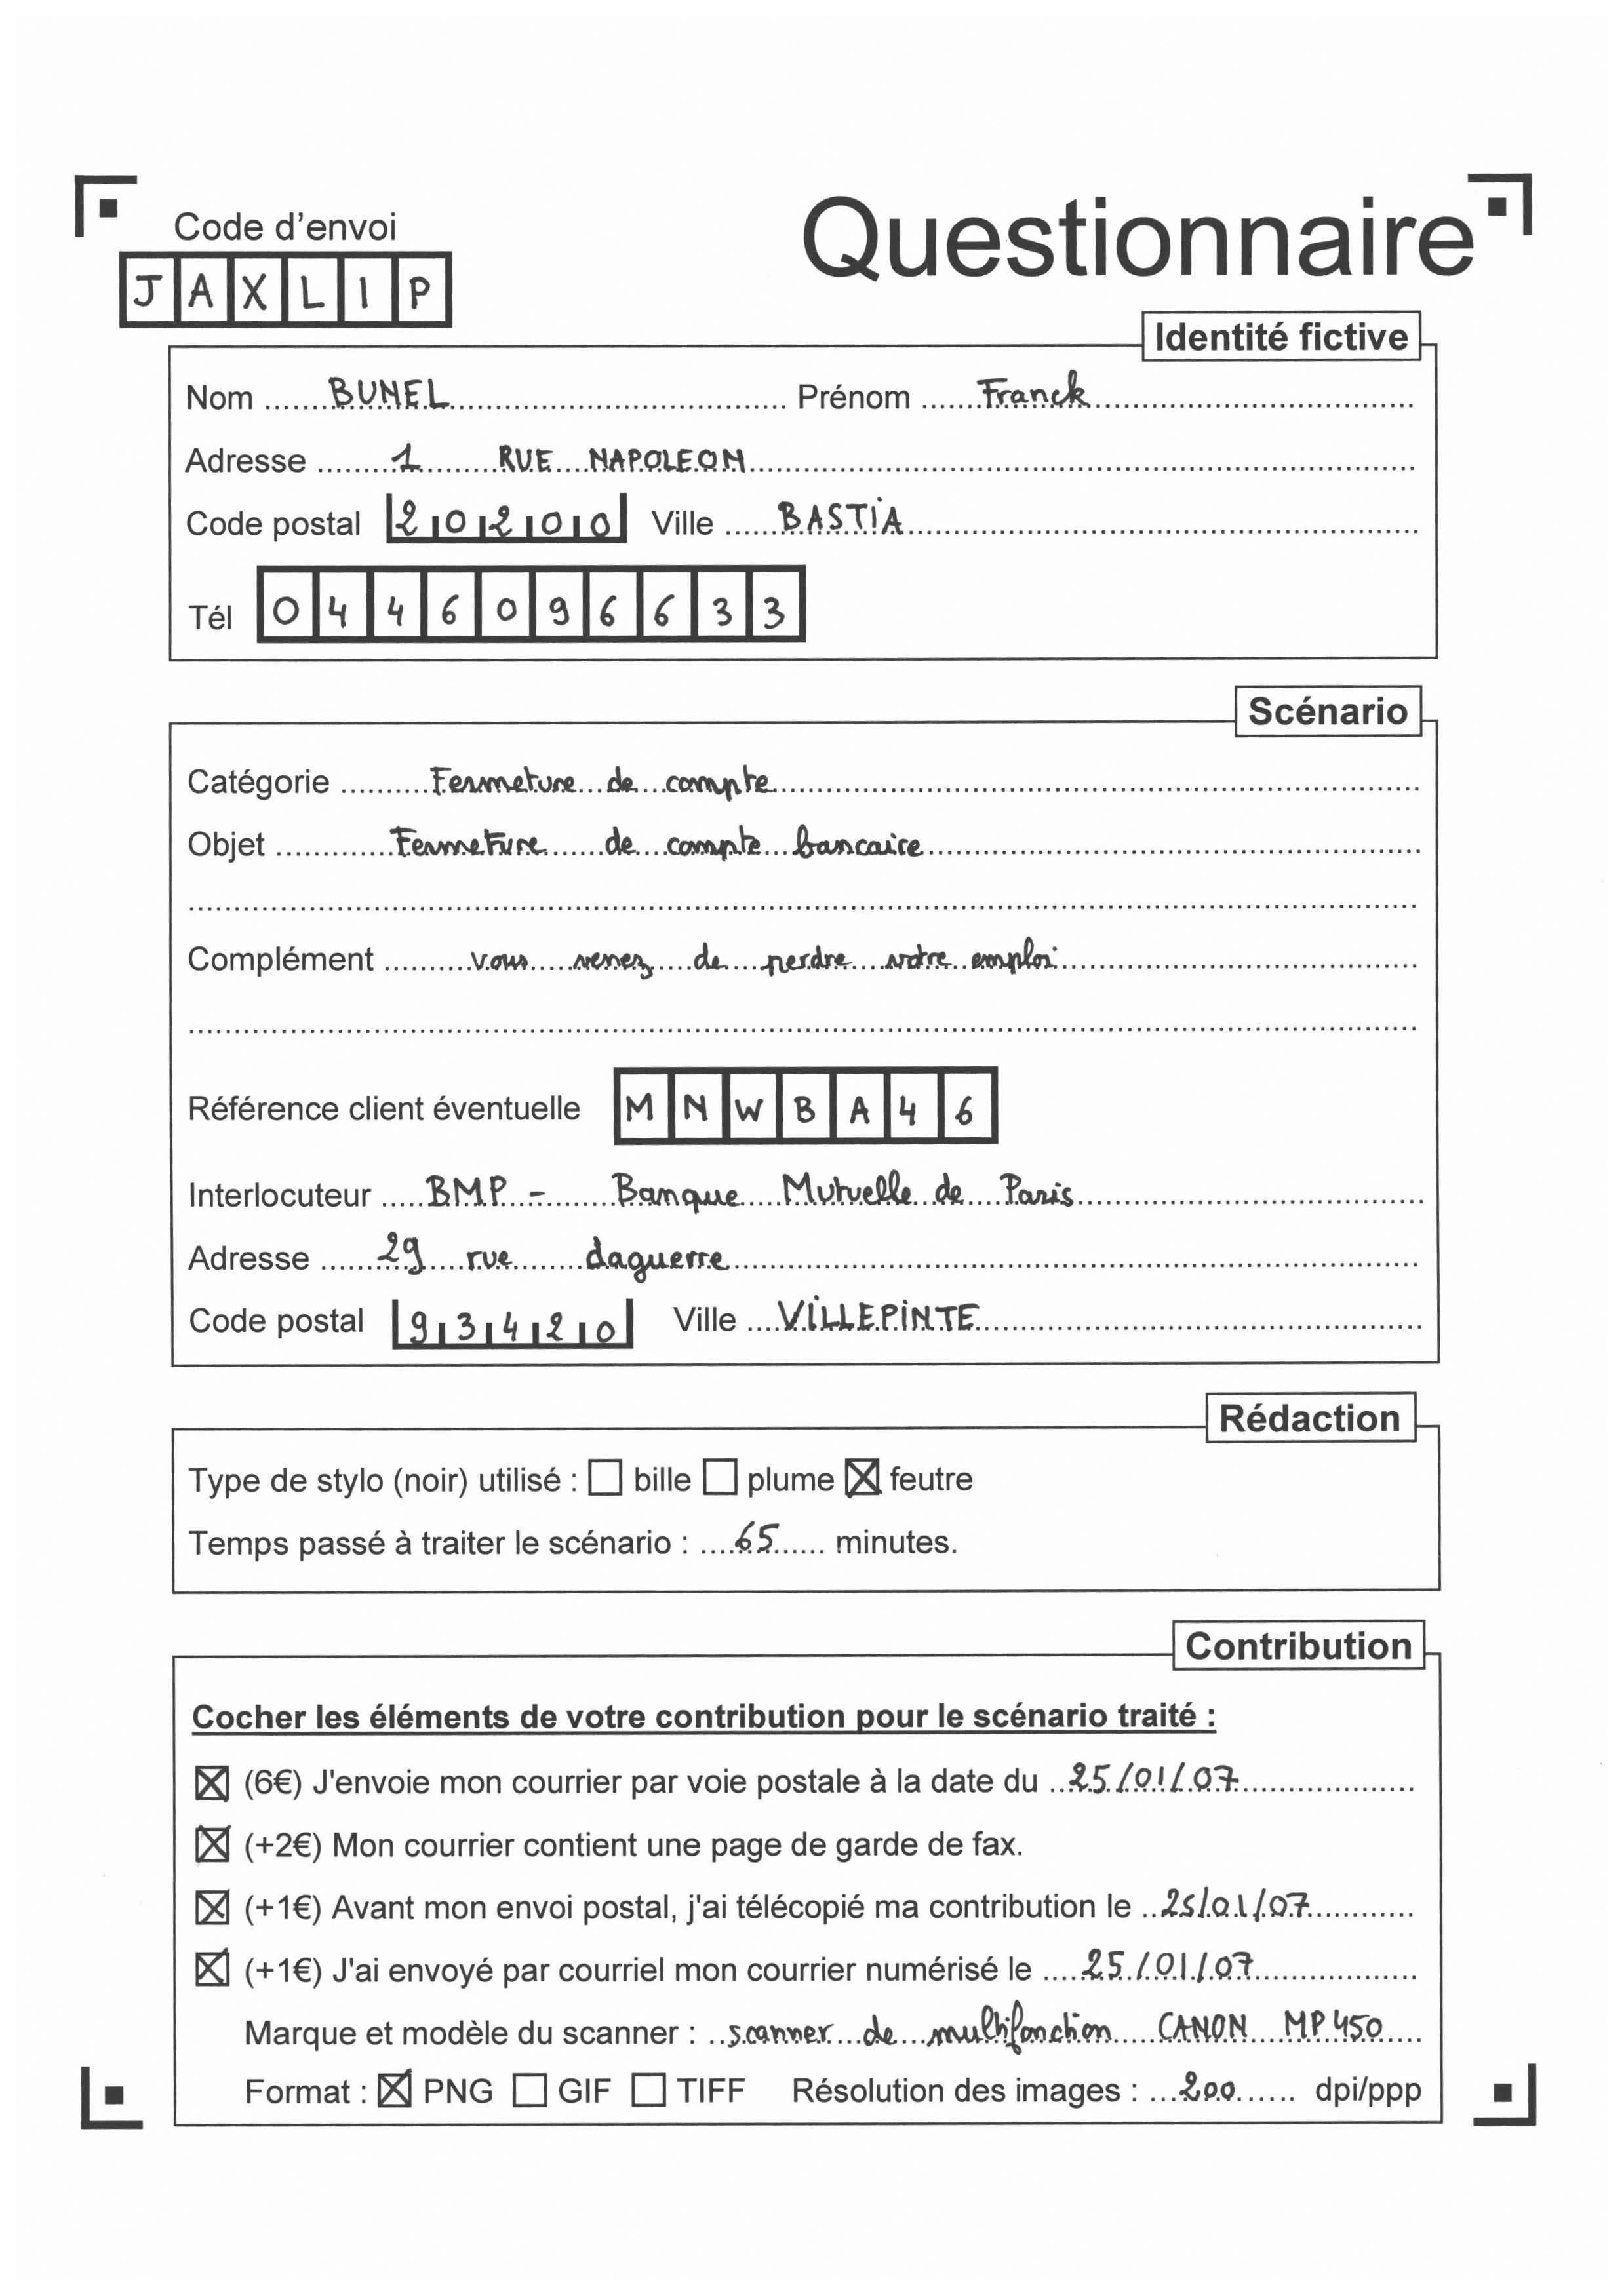 Code d'envoi
JAXLIP
Questionnaire
Identité fictive
Nom BUNEL Prénom Franck
Adresse 1 RUE NAPOLEON
Code postal 20200 Ville BASTIA
Tél 0446096633
Scénario
Catégorie Fermeture de compte
Objet Fermeture de compte bancaire
Complément vous venez de perdre votre emploi
Référence client éventuelle MNWBA46
Interlocuteur BMP - Banque Mutuelle de Paris
Adresse 29 rue daguerre
Code postal 93420 Ville VILLEPINTE
Rédaction
Type de stylo (noir) utilisé : ☐ bille ☐ plume ☒ feutre
Temps passé à traiter le scénario : 65 minutes.
Contribution
Cocher les éléments de votre contribution pour le scénario traité :
☒ (6€) J'envoie mon courrier par voie postale à la date du 25/01/07
☒ (+2€) Mon courrier contient une page de garde de fax.
☒ (+1€) Avant mon envoi postal, j'ai télécopié ma contribution le 25/01/07
☒ (+1€) J'ai envoyé par courriel mon courrier numérisé le 25/01/07
Marque et modèle du scanner : scanner de multifonction CANON MP450
Format : ☒ PNG ☐ GIF ☐ TIFF Résolution des images : 200 dpi/ppp